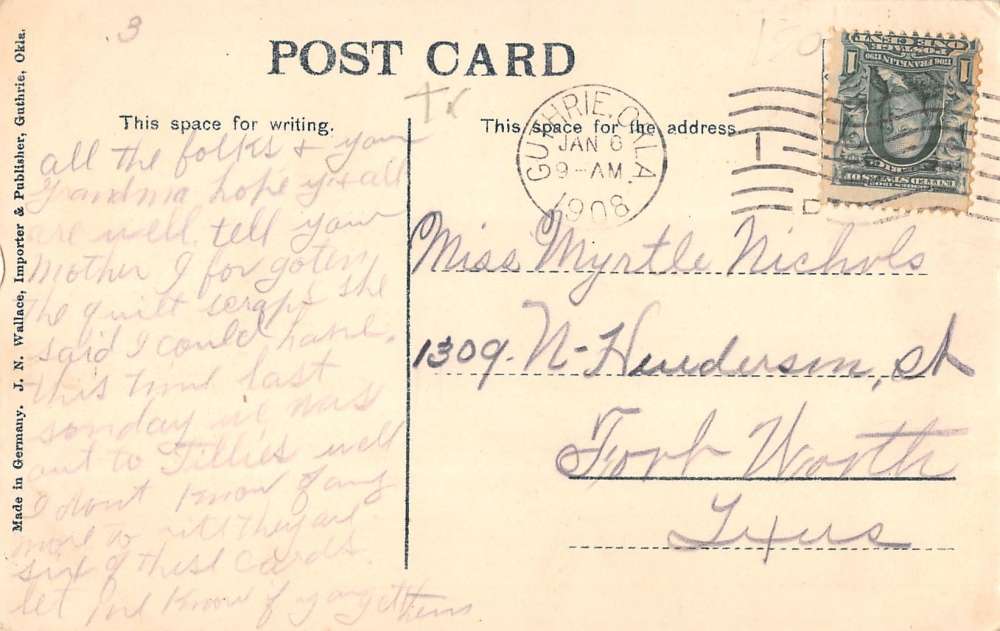 3
POST CARD
This space for writing.
This space for the address.
GUTHRIE, OKLA.
JAN 6
9-AM
1908
Made in Germany. J. N. Wallace, Importer & Publisher, Guthrie, Okla.
all the folks & your
Grandma hope y & all
are well. tell your
Mother I forgoten
the quilt scraps she
said I could have.
this time last
sonday we was
out to Tillies well
I dont know of any
more to rite they are
six of these cards
let me know if you get them
Miss Myrtle Nichols
1309 - N - Henderson, St
Fort Worth
Texas
ONE CENT
POSTAGE
1706 FRANKLIN 1790
1 1
SERIES 1902
UNITED STATES OF AMERICA